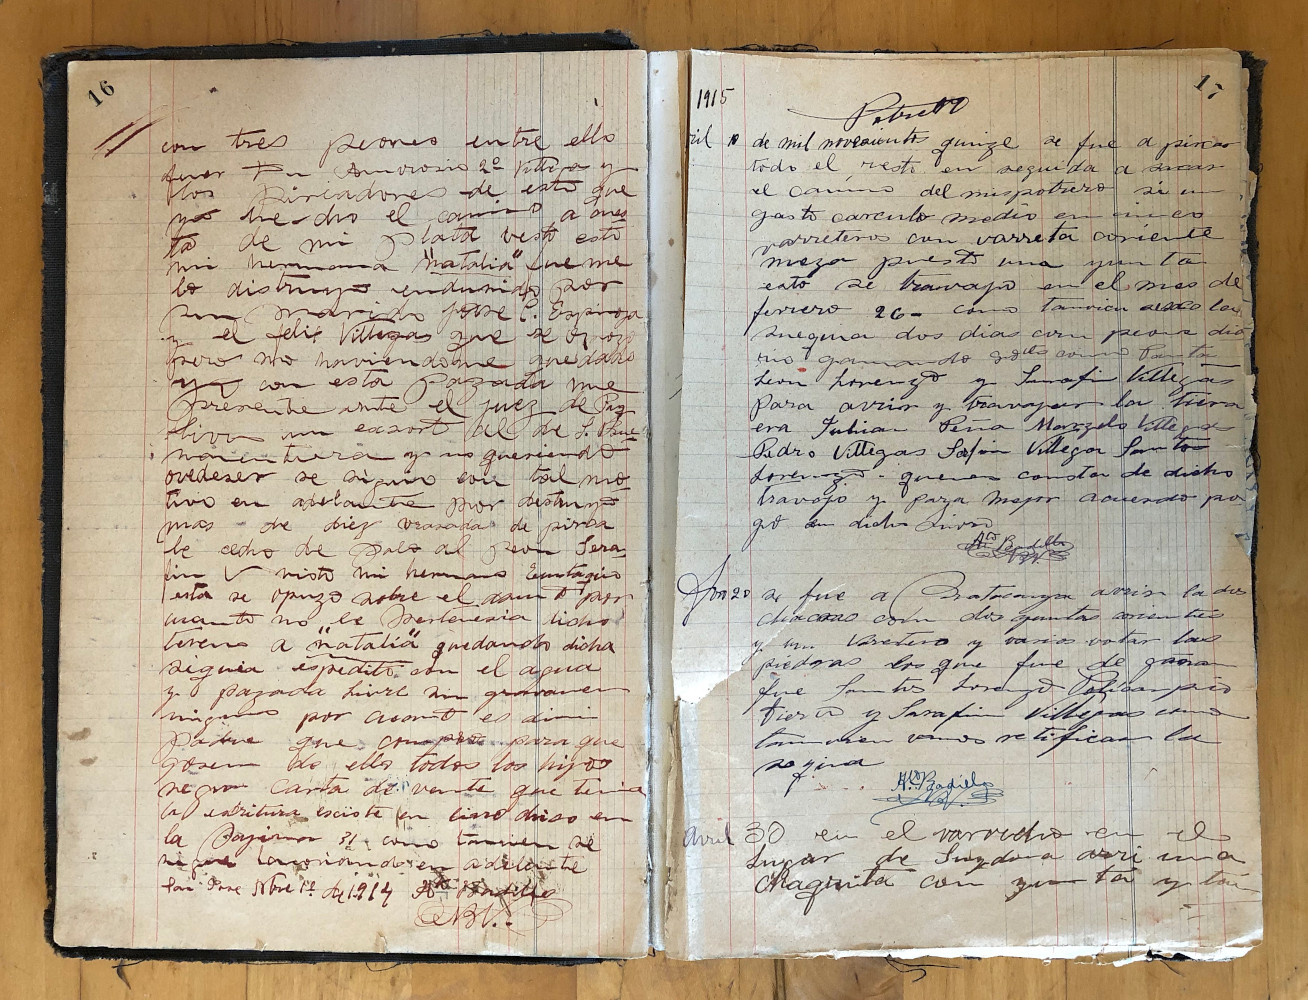 16
con tres peones entre ello
fuer Ambrosio 2º Villega y
los pircadores de esto que
me he dho el camino a cues
ta de mi plata resto esto
mi hermana "natalia" fue me
lo distruyo endusido por
sun marido José C. Espinoza
y el felis Villegas que se opozo
pero no haviendome quedado
con esta pazada me
presente ante el juez de Paz
Oliva un exsort del de S. Buena
naventura y no queriendo
ovedeser se siguio con tal mo
tivo en adelante por destruyo
mas de diez vrasada de pirca
le echo de palo al peon Sera
fin V visto mi hermano Eustaquio
esta se opuzo sobre el camino por
cuanto no le pertenesia dicho
tereno a "natalia" quedando dicha
seguia espedito con el agua
y pazada livre sin gravamen
ninguno por cuanto es dimi
padre que compró para que
gosen de ello todos los hijos
segun carta de vente que tenia
la escritura esciste en livro diso en
la Pagina 31 como tanvien se
sigue en adelante
San Jose Nbre 1º de 1914 Ao Badillo
ABV.
17
1915
Potrero
ril 10 de mil novesiento quinze se fue a pircar
todo el resto en seguida a sacar
el camino del mispotrero si un
gasto carculo medio en cinco
varreteros con varreta coriente
meza puesto una yunta
esto se travajo en el mes de
ferrero 26 - como tanvien saco la
suequia dos dias con peone dia
rio ganando soles como Santo
Leon Lorenzo y Sarafin Villegas
para avrir y travajar la tiera
era Julian Peña Marzelo Villegas
Pedro Villegas Safin Villega Santo
Lorenzo - quenes consta de dicho
travajo y para mejor acuerdo pon
go en dicho Livro
Ao Badillo
BV.
Jun 20 se fue a Pratacanya avrir la dos
chacras con dos yuntas corientes
y un varetero y varios votar las
piedras los que fue de gañan
fue Santos Lorenzo Policarpio
Tierro y Sarafin Villegas como
tanvien vamos retifican la
sequia
Ao Badillo
BV.
Avril 30 en el varvecho en el
Lugar de avri una
chaquita con yunta y tan